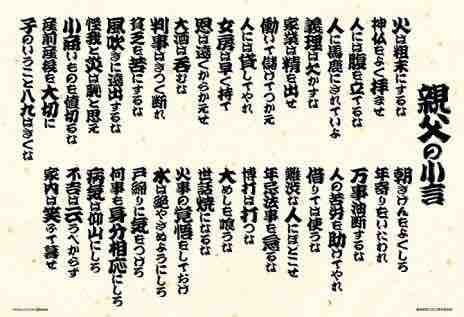 親父の小言
火は粗末にするな
神仏をよく拝ませ
人には腹を立てるな
人に馬鹿にされていよ
義理は欠かすな
家業は精を出せ
働いて儲けてつかえ
人には貸してやれ
女房は早く持て
恩は遠くからかえせ
大酒は呑むな
判事はきつく断れ
貧乏を苦にするな
風吹きに遠出するな
怪我と災は恥と思え
小商いものを値切るな
産前産後を大切に
子のいうこと八九はきくな
朝きげんをよくしろ
年寄りをいたわれ
万事油断するな
人の苦労を助けてやれ
借りては使うな
難渋な人にほどこせ
年忌法事を怠るな
博打は打つな
大めしを喰うな
世話焼になるな
火事の覚悟をしておけ
水は絶やさぬようにしろ
戸締りに気をつけろ
何事も身分相応にしろ
病気は仰山にしろ
不吉は云うべからず
家内は笑ふて暮せ